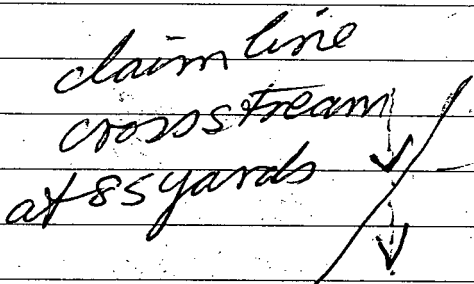 claim line
cross stream
at 85 yards